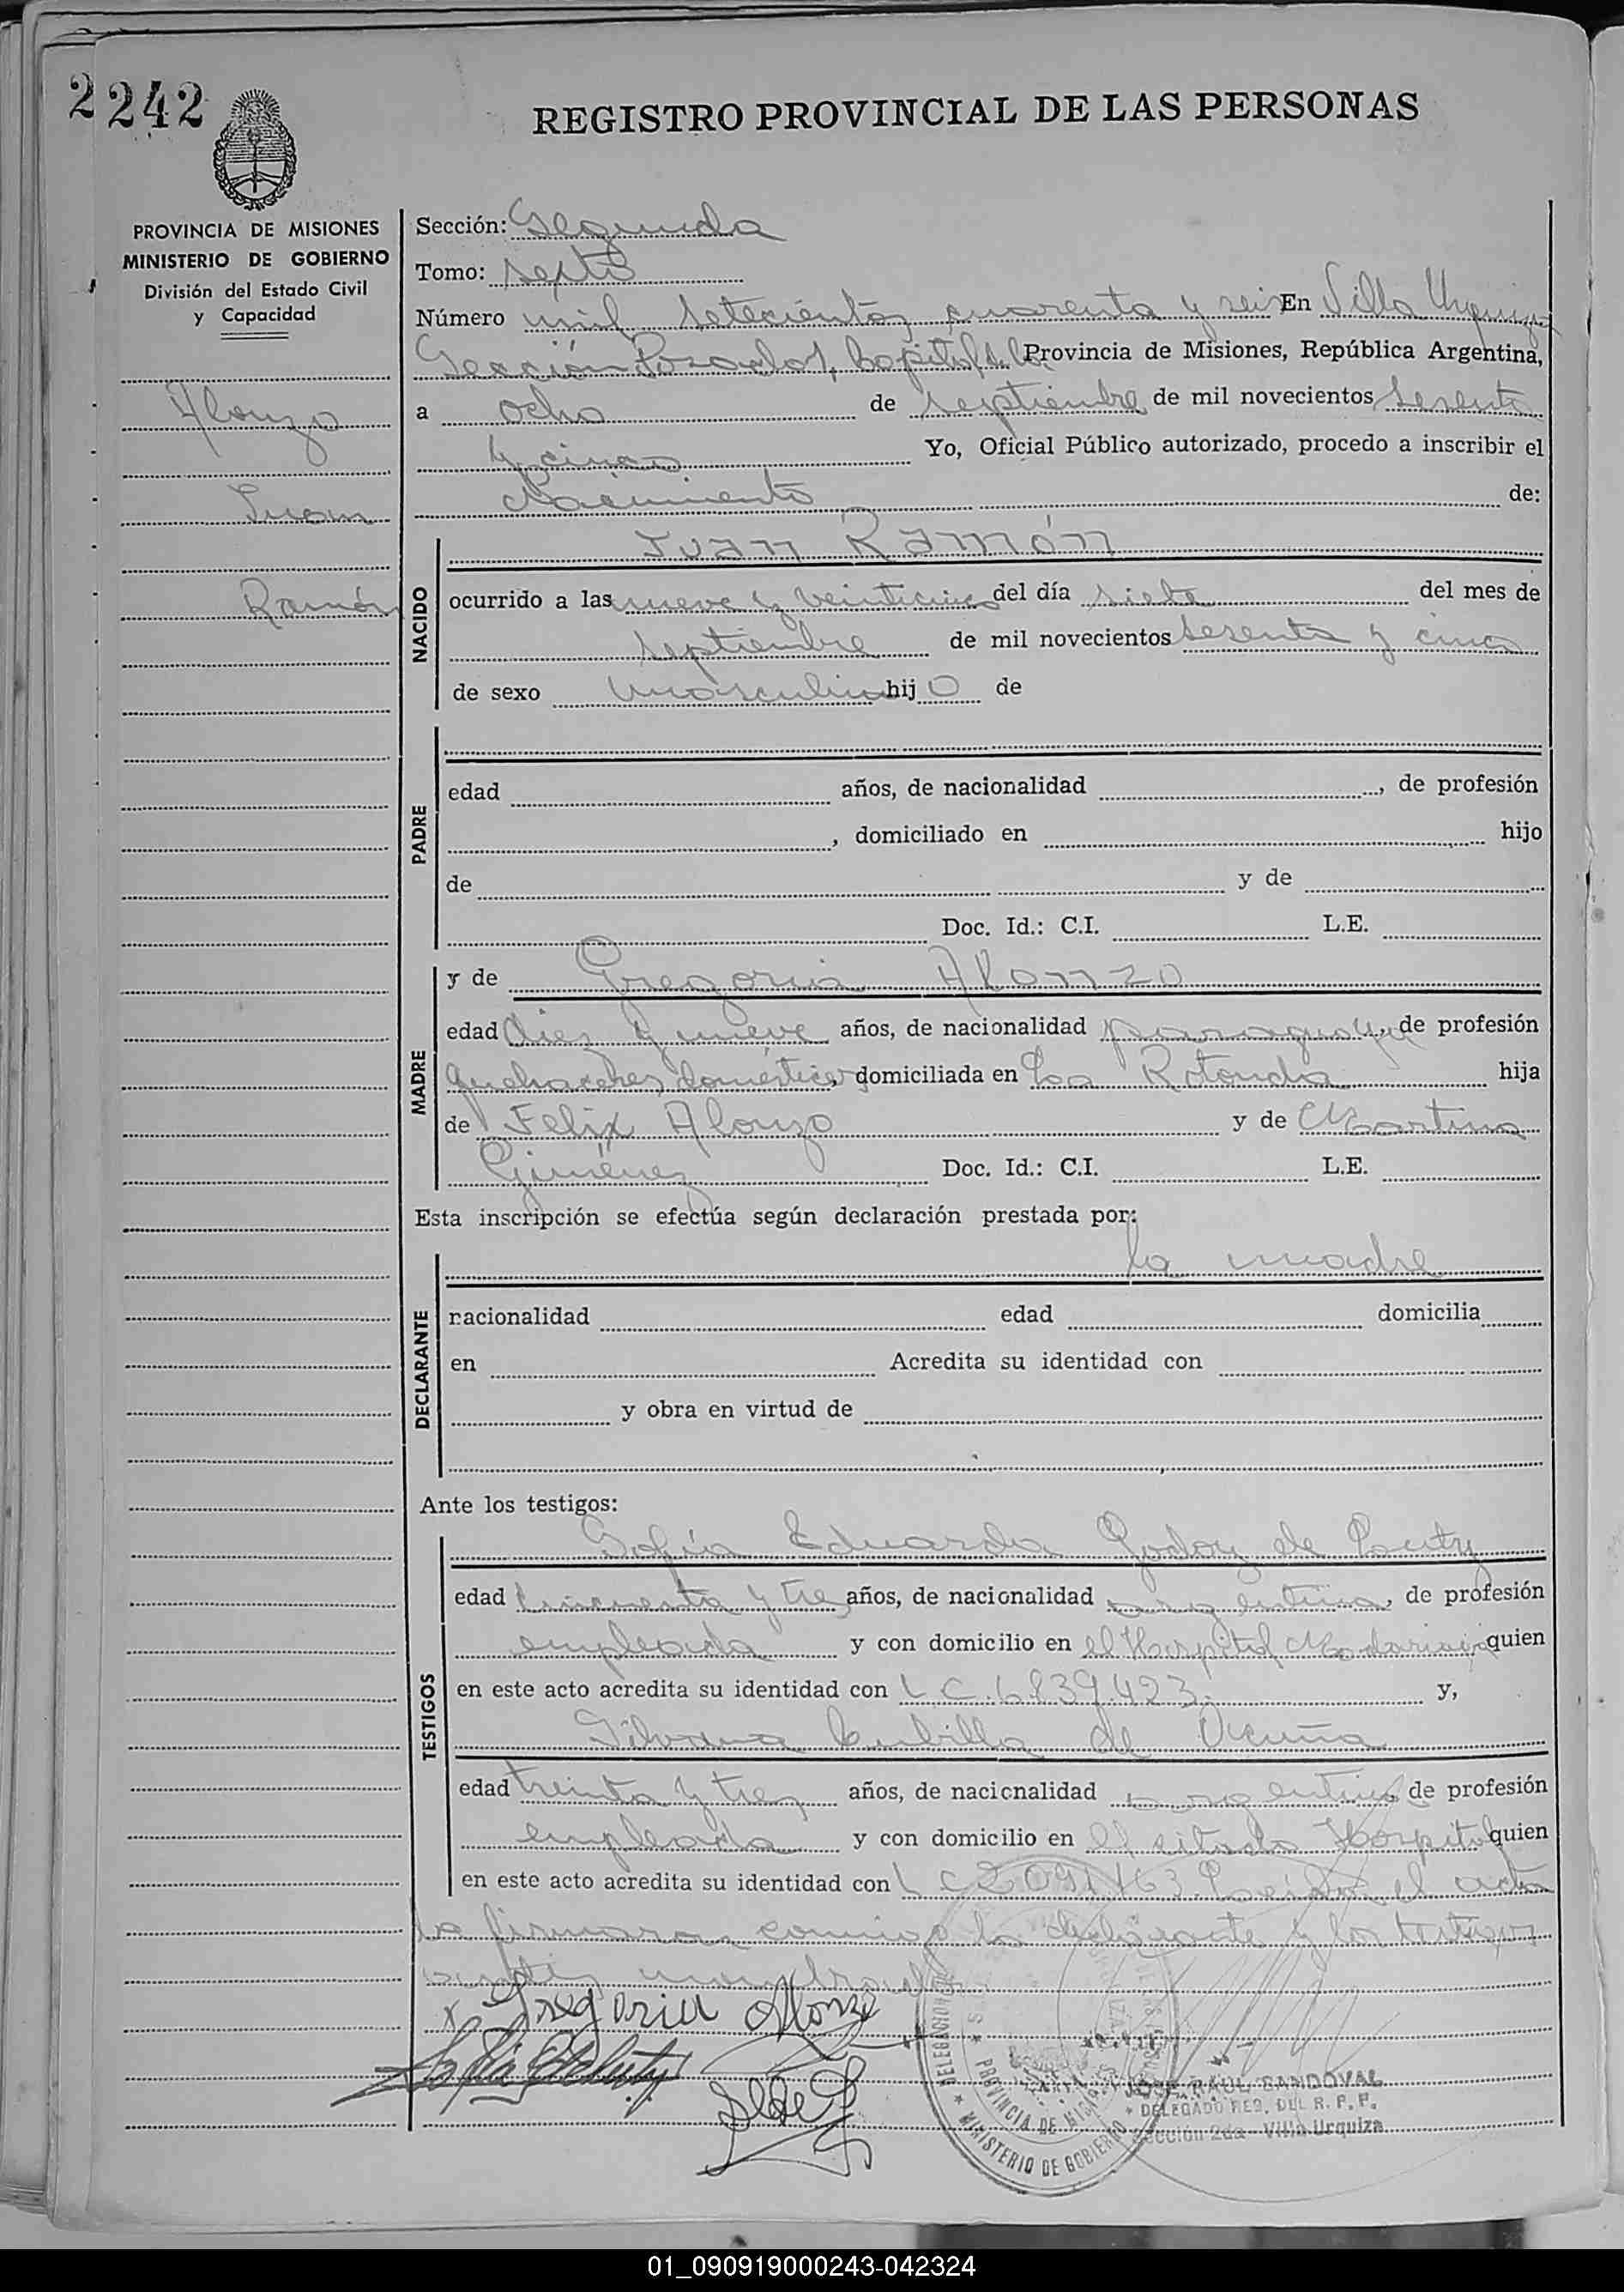 2242
REGISTRO PROVINCIAL DE LAS PERSONAS
PROVINCIA DE MISIONES
MINISTERIO DE GOBIERNO
División del Estado Civil
y Capacidad
Alonzo
Juan
Ramón
Sección: Segunda
Tomo: septo
Número mil setecientos cuarenta y seis En Villa Urquiza
Sección Posadas, Capital de la Provincia de Misiones, República Argentina,
a ocho de septiembre de mil novecientos sesenta
y cinco Yo, Oficial Público autorizado, procedo a inscribir el
Nacimiento de:
NACIDO
Juan Ramón
ocurrido a las nueve y veinticinco del día siete del mes de
septiembre de mil novecientos sesenta y cinco
de sexo masculino hijo de
PADRE
edad años, de nacionalidad , de profesión
, domiciliado en hijo
de y de
Doc. Id.: C.I. L.E.
MADRE
y de Gregoria Alonzo
edad diez y nueve años, de nacionalidad paraguaya, de profesión
quehaceres domésticos, domiciliada en La Rotonda hija
de Felix Alonzo y de Martina
Giménez Doc. Id.: C.I. L.E.
Esta inscripción se efectúa según declaración prestada por:
DECLARANTE
la madre
nacionalidad edad domicilia
en Acredita su identidad con
y obra en virtud de
Ante los testigos:
TESTIGOS
Sofía Eduarda Godoy de
edad cincuenta y tres años, de nacionalidad argentina, de profesión
empleada y con domicilio en el Hospital Madariaga quien
en este acto acredita su identidad con L C. 6839.423. y,
Silvana Cubilla de Vicuña
edad treinta y tres años, de nacionalidad argentina de profesión
empleada y con domicilio en el sitado Hospital quien
en este acto acredita su identidad con L C Leída el acta
la firmaron conmigo la declarante y los testigos
x Gregoria Alonzo
DELEGACION
PROVINCIA DE MISIONES
MINISTERIO DE GOBIERNO
JOSE RAUL SANDOVAL
DELEGADO REG. DEL R. P. P.
Sección 2da - Villa Urquiza
01_090919000243-042324